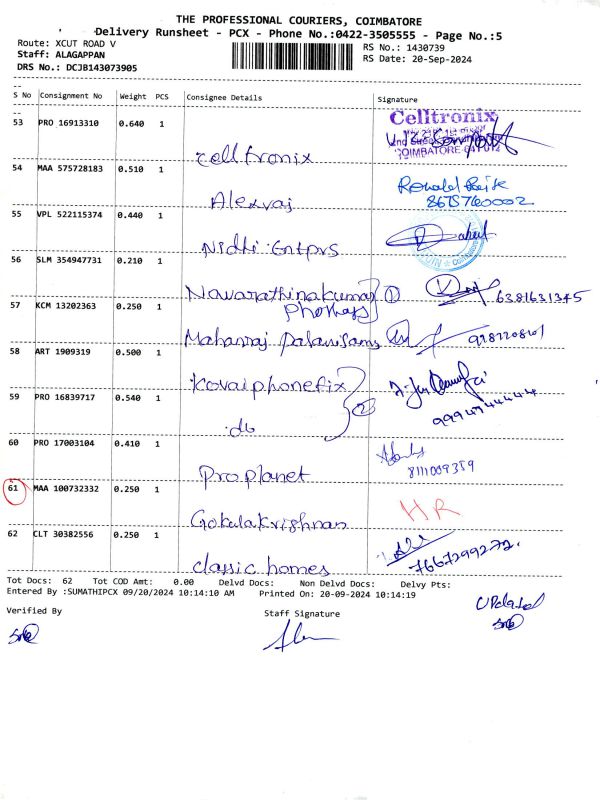 THE PROFESSIONAL COURIERS, COIMBATORE
Delivery Runsheet - PCX - Phone No.:0422-3505555 - Page No.:5
Route: XCUT ROAD V
RS No.: 1430739
Staff: ALAGAPPAN
RS Date: 20-Sep-2024
DRS No.: DCJB143073905
S No Consignment No Weight PCS Consignee Details Signature
53 PRO 16913310 0.640 1
Celltronix
2nd Street
COIMBATORE 641 012
Celltronix
54 MAA 575728183 0.510 1
Alexraj
8675760002
55 VPL 522115374 0.440 1
Nidhi Entprs
56 SLM 354947731 0.210 1
Navarathinakumar 1 6381631345
57 KCM 13202363 0.250 1
Maharaj Palanisamy
58 ART 1909319 0.500 1
Kovaiphonefix
2
59 PRO 16839717 0.540 1
do
9994944444
60 PRO 17003104 0.410 1
Proplanet
8111009359
61 MAA 100732332 0.250 1
Gokulakrishnan HR
62 CLT 30382556 0.250 1
classic homes 7667299272.
Tot Docs: 62 Tot COD Amt: 0.00 Delvd Docs: Non Delvd Docs: Delvy Pts:
Entered By :SUMATHIPCX 09/20/2024 10:14:10 AM Printed On: 20-09-2024 10:14:19
Verified By Staff Signature
Updated